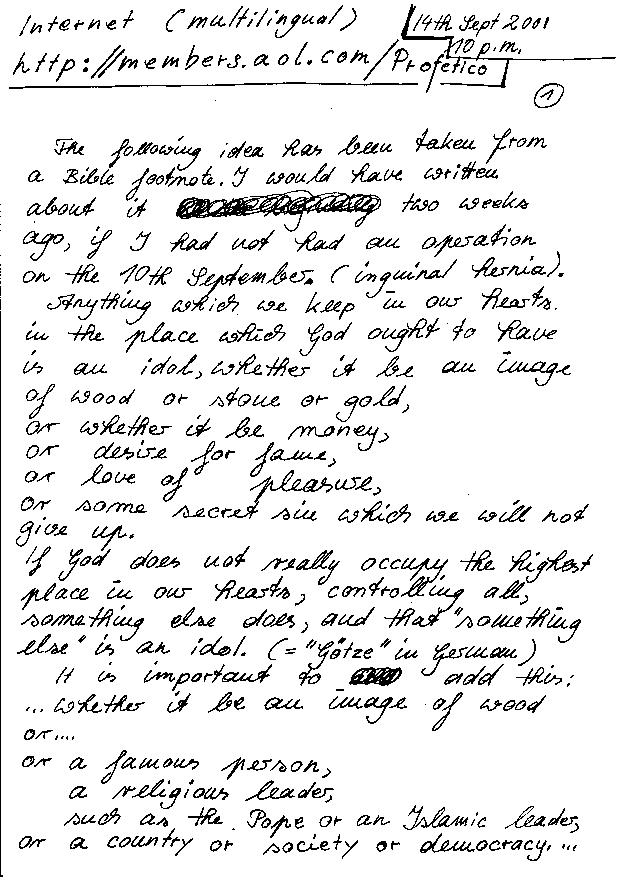 Internet (multilingual)
14th Sept 2001
10 p.m.
http://members.aol.com/Profetico
1
The following idea has been taken from
a Bible footnote. I would have written
about it two weeks
ago, if I had not had an operation
on the 10th September. (inguinal hernia).
Anything which we keep in our hearts.
in the place which God ought to have
is an idol, whether it be an image
of wood or stone or gold,
or whether it be money,
or desire for fame,
or love of pleasure,
or some secret sin which we will not
give up.
If God does not really occupy the highest
place in our hearts, controlling all,
something else does, and that "something
else" is an idol. (= "Götze" in German)
It is important to add this:
... whether it be an image of wood
or....
or a famous person,
a religious leader,
such as the Pope or an Islamic leader,
or a country or society or democracy....